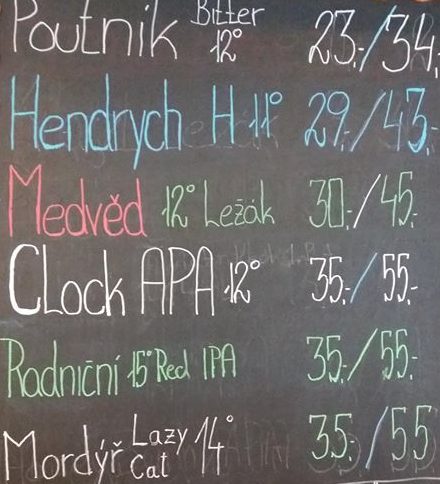 Poutník Bitter 12° 23.-/34.-
Hendrych H 11° 29.-/43.-
Medvěd 12° Ležák 30.-/45.-
CLock APA 12° 35.-/55.-
Radniční 15° Red IPA 35.-/55.-
Mordýř Lazy Cat 14° 35.-/55